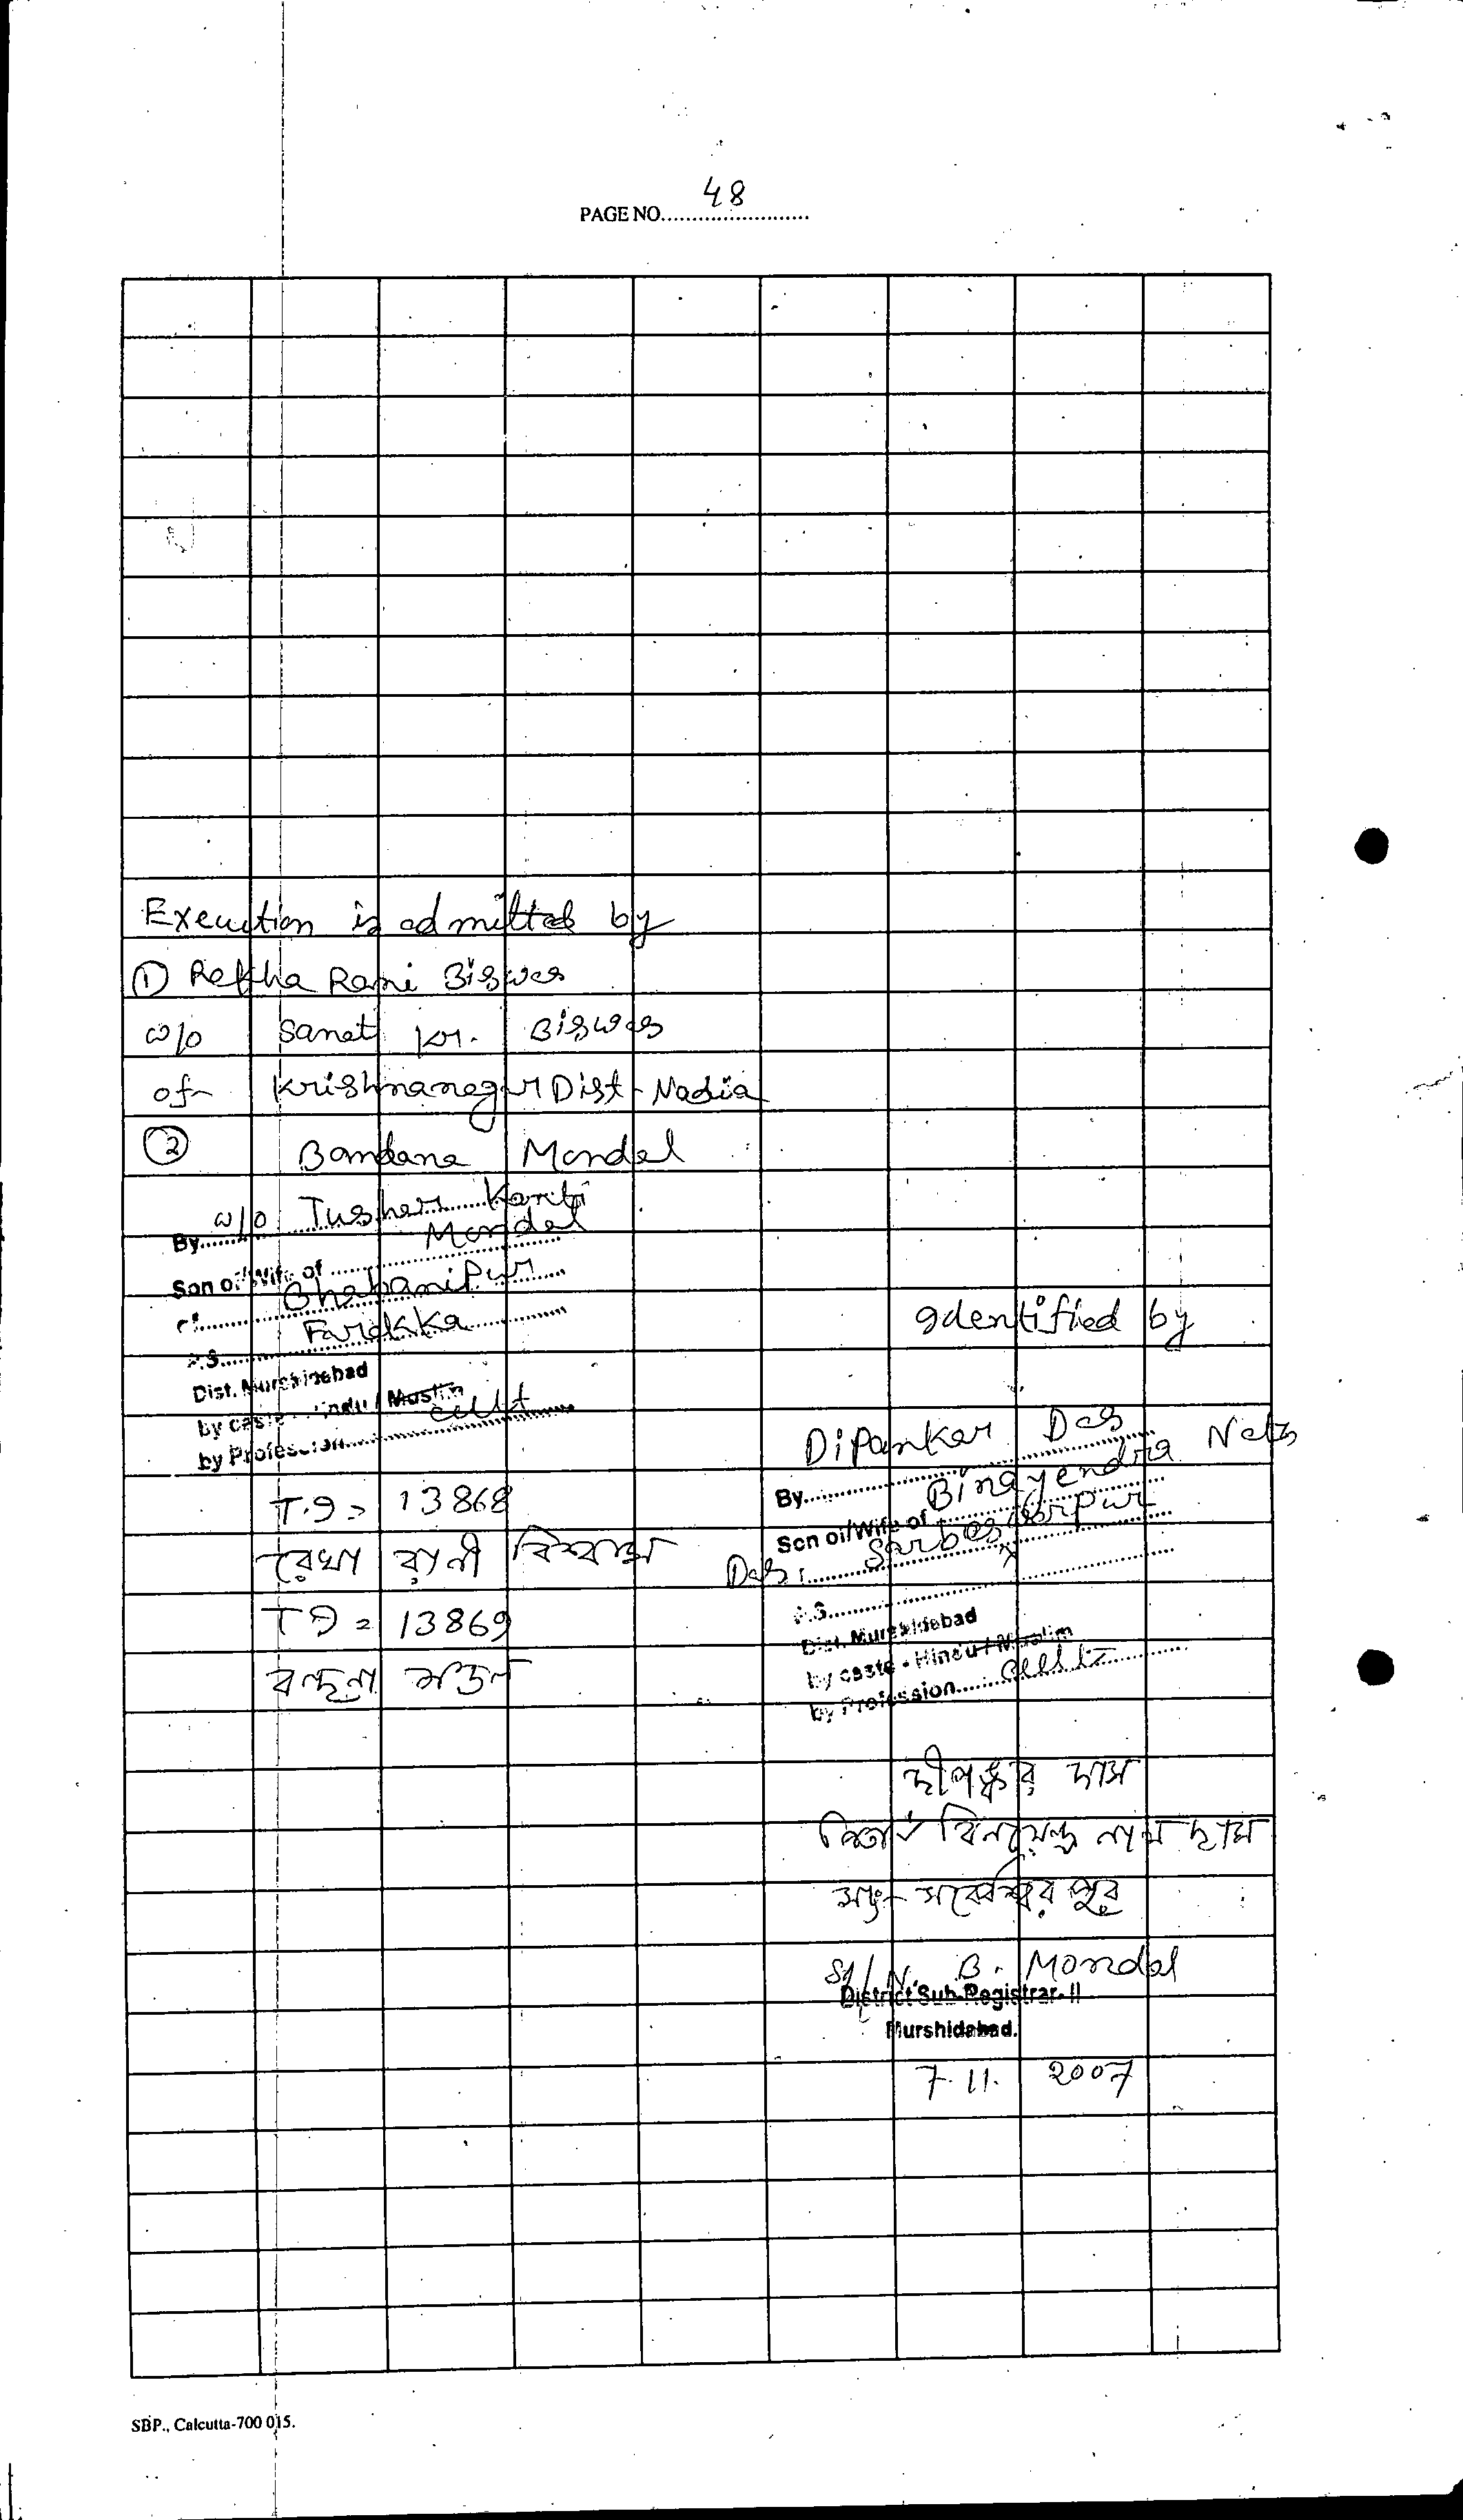 PAGE NO. 48
Execution is admitted by
① Rekha Rani Biswas
w/o Sanat Kr. Biswas
of Krishnanagar Dist - Nadia
② Bandana Mondal
By w/o Tushar Kanti
Mondal
Son of/Wife of
Bhabanipur
of
Farakka
P.S.
Dist. Murshidabad
by caste - Hindu / Muslim
by Profession cult
T.I = 13868
রেখা রানী বিশ্বাস
T I = 13869
বন্দনা মণ্ডল
Identified by
Dipankar Das
By Binayendra Nath
Son of/Wife of
Das, Sarbeswarpur
P.S. x
Dist. Murshidabad
by caste - Hindu / Muslim
by Profession cult
দীপঙ্কর দাস
পিতা বিনয়েন্দ্র নাথ দাস
সাং - সর্বেশ্বরপুর
Sd/ N. B. Mondal
District Sub-Registrar-II
Murshidabad.
7.11. 2007
SBP., Calcutta-700 015.